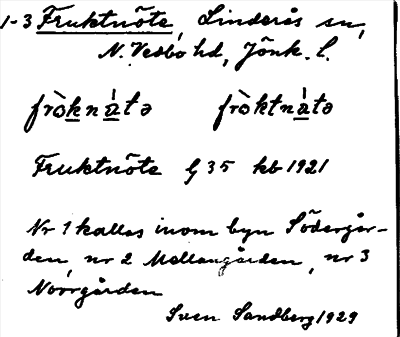 1-3 Fruktnöte, Linderås sn,
N. Vedbo hd, Jönk. l.
fròknàtə fròktnàtə
Fruktnöte G 35 kb 1921
Nr 1 kallas inom byn Södergår-
den, nr 2 Mellangården, nr 3
Norrgården
Sven Sandberg 1929